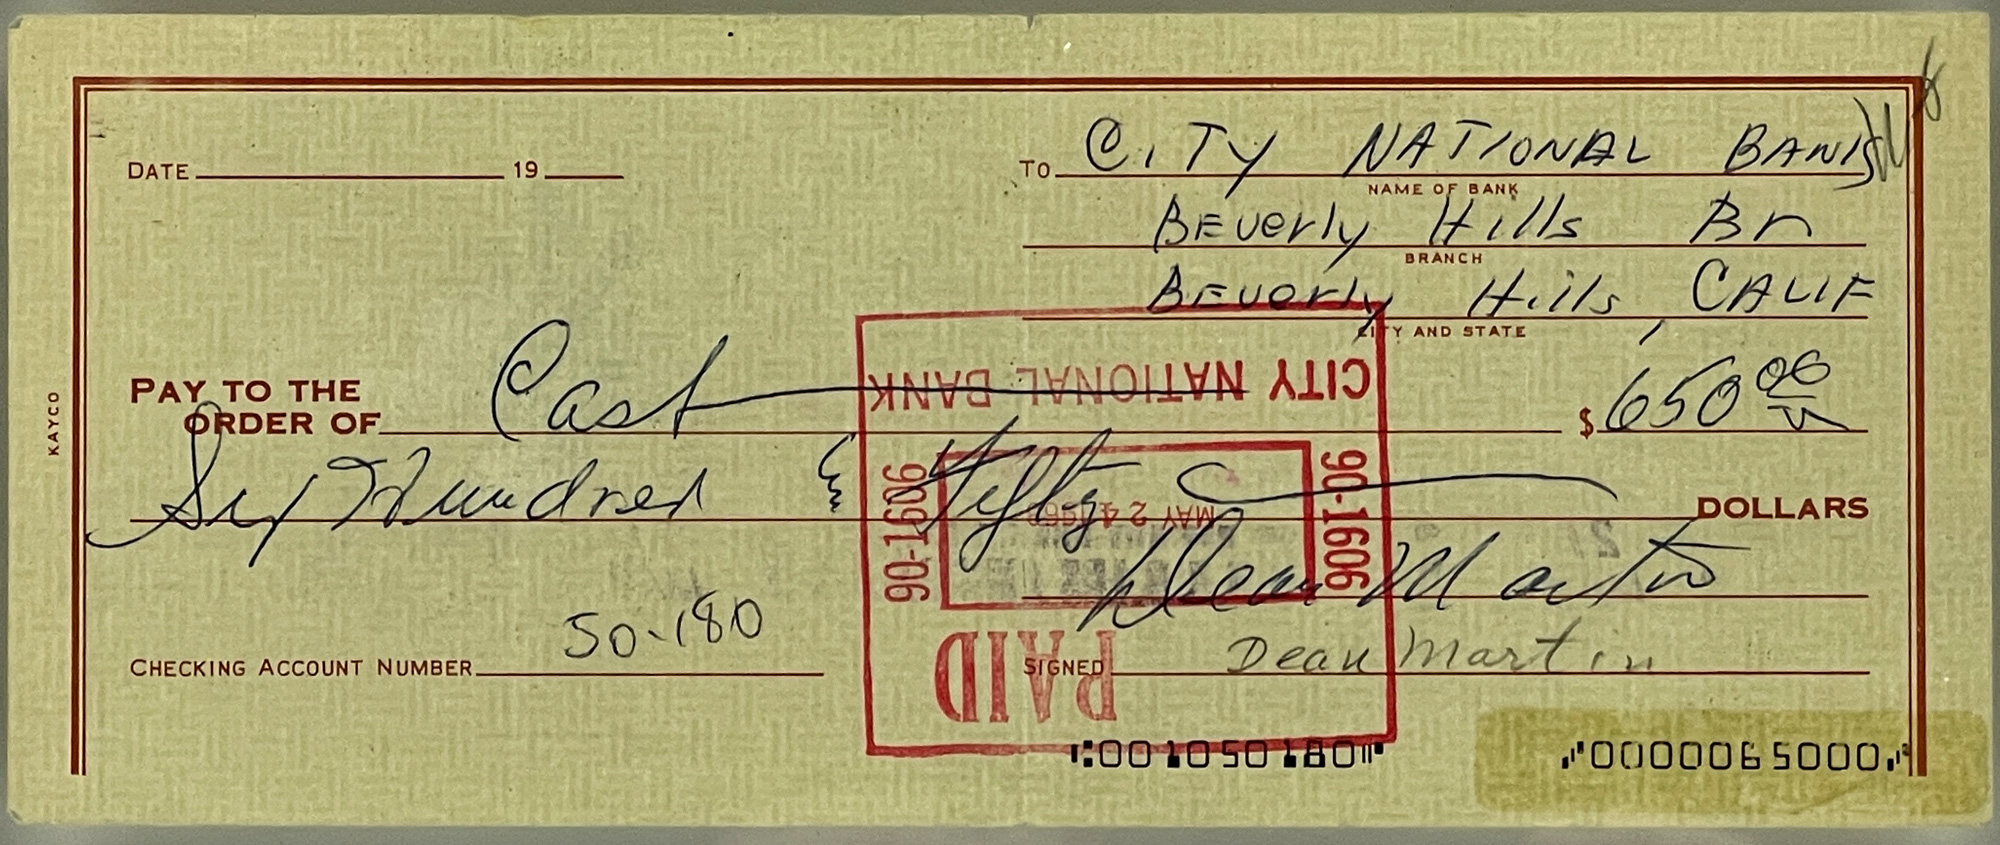 DATE 19
TO CITY NATIONAL BANK
NAME OF BANK
BEverly Hills Br
BRANCH
BEverly Hills, CALIF
CITY AND STATE
CITY NATIONAL BANK
PAY TO THE
ORDER OF Cash $ 650 00
KAYCO
Six Hundred & Fifty DOLLARS
90-1606
90-1606
MAY 24
Dean Martin
PAID
CHECKING ACCOUNT NUMBER 50-180
SIGNED Dean Martin
00 10 50 180 0000065000